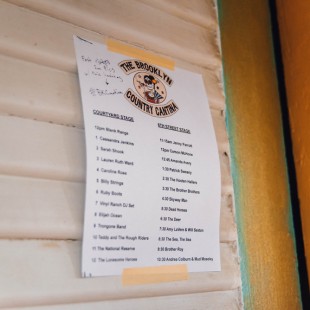 THE BROOKLYN
COUNTRY CANTINA
COURTYARD STAGE
12pm Blank Range
1 Cassandra Jenkins
2 Sarah Shook
3 Lauren Ruth Ward
4 Caroline Rose
5 Billy Strings
6 Ruby Boots
7 Vinyl Ranch DJ Set
8 Elijah Ocean
9 Trongone Band
10 Teddy and The Rough Riders
11 The National Reserve
12 The Lonesome Heroes
6TH STREET STAGE
11:15am Jenny Parrott
12pm Carson McHone
12.45 Amanda Avery
1.30 Patrick Sweany
3.30 The Brother Brothers
5.30 Dead Horses
6.30 The Deer
7.30 Amy Lavere & Will Sexton
8.30 The Sea, The Sea
9.30 Brother Roy
10.30 Andrea Colburn & Mud Moseley